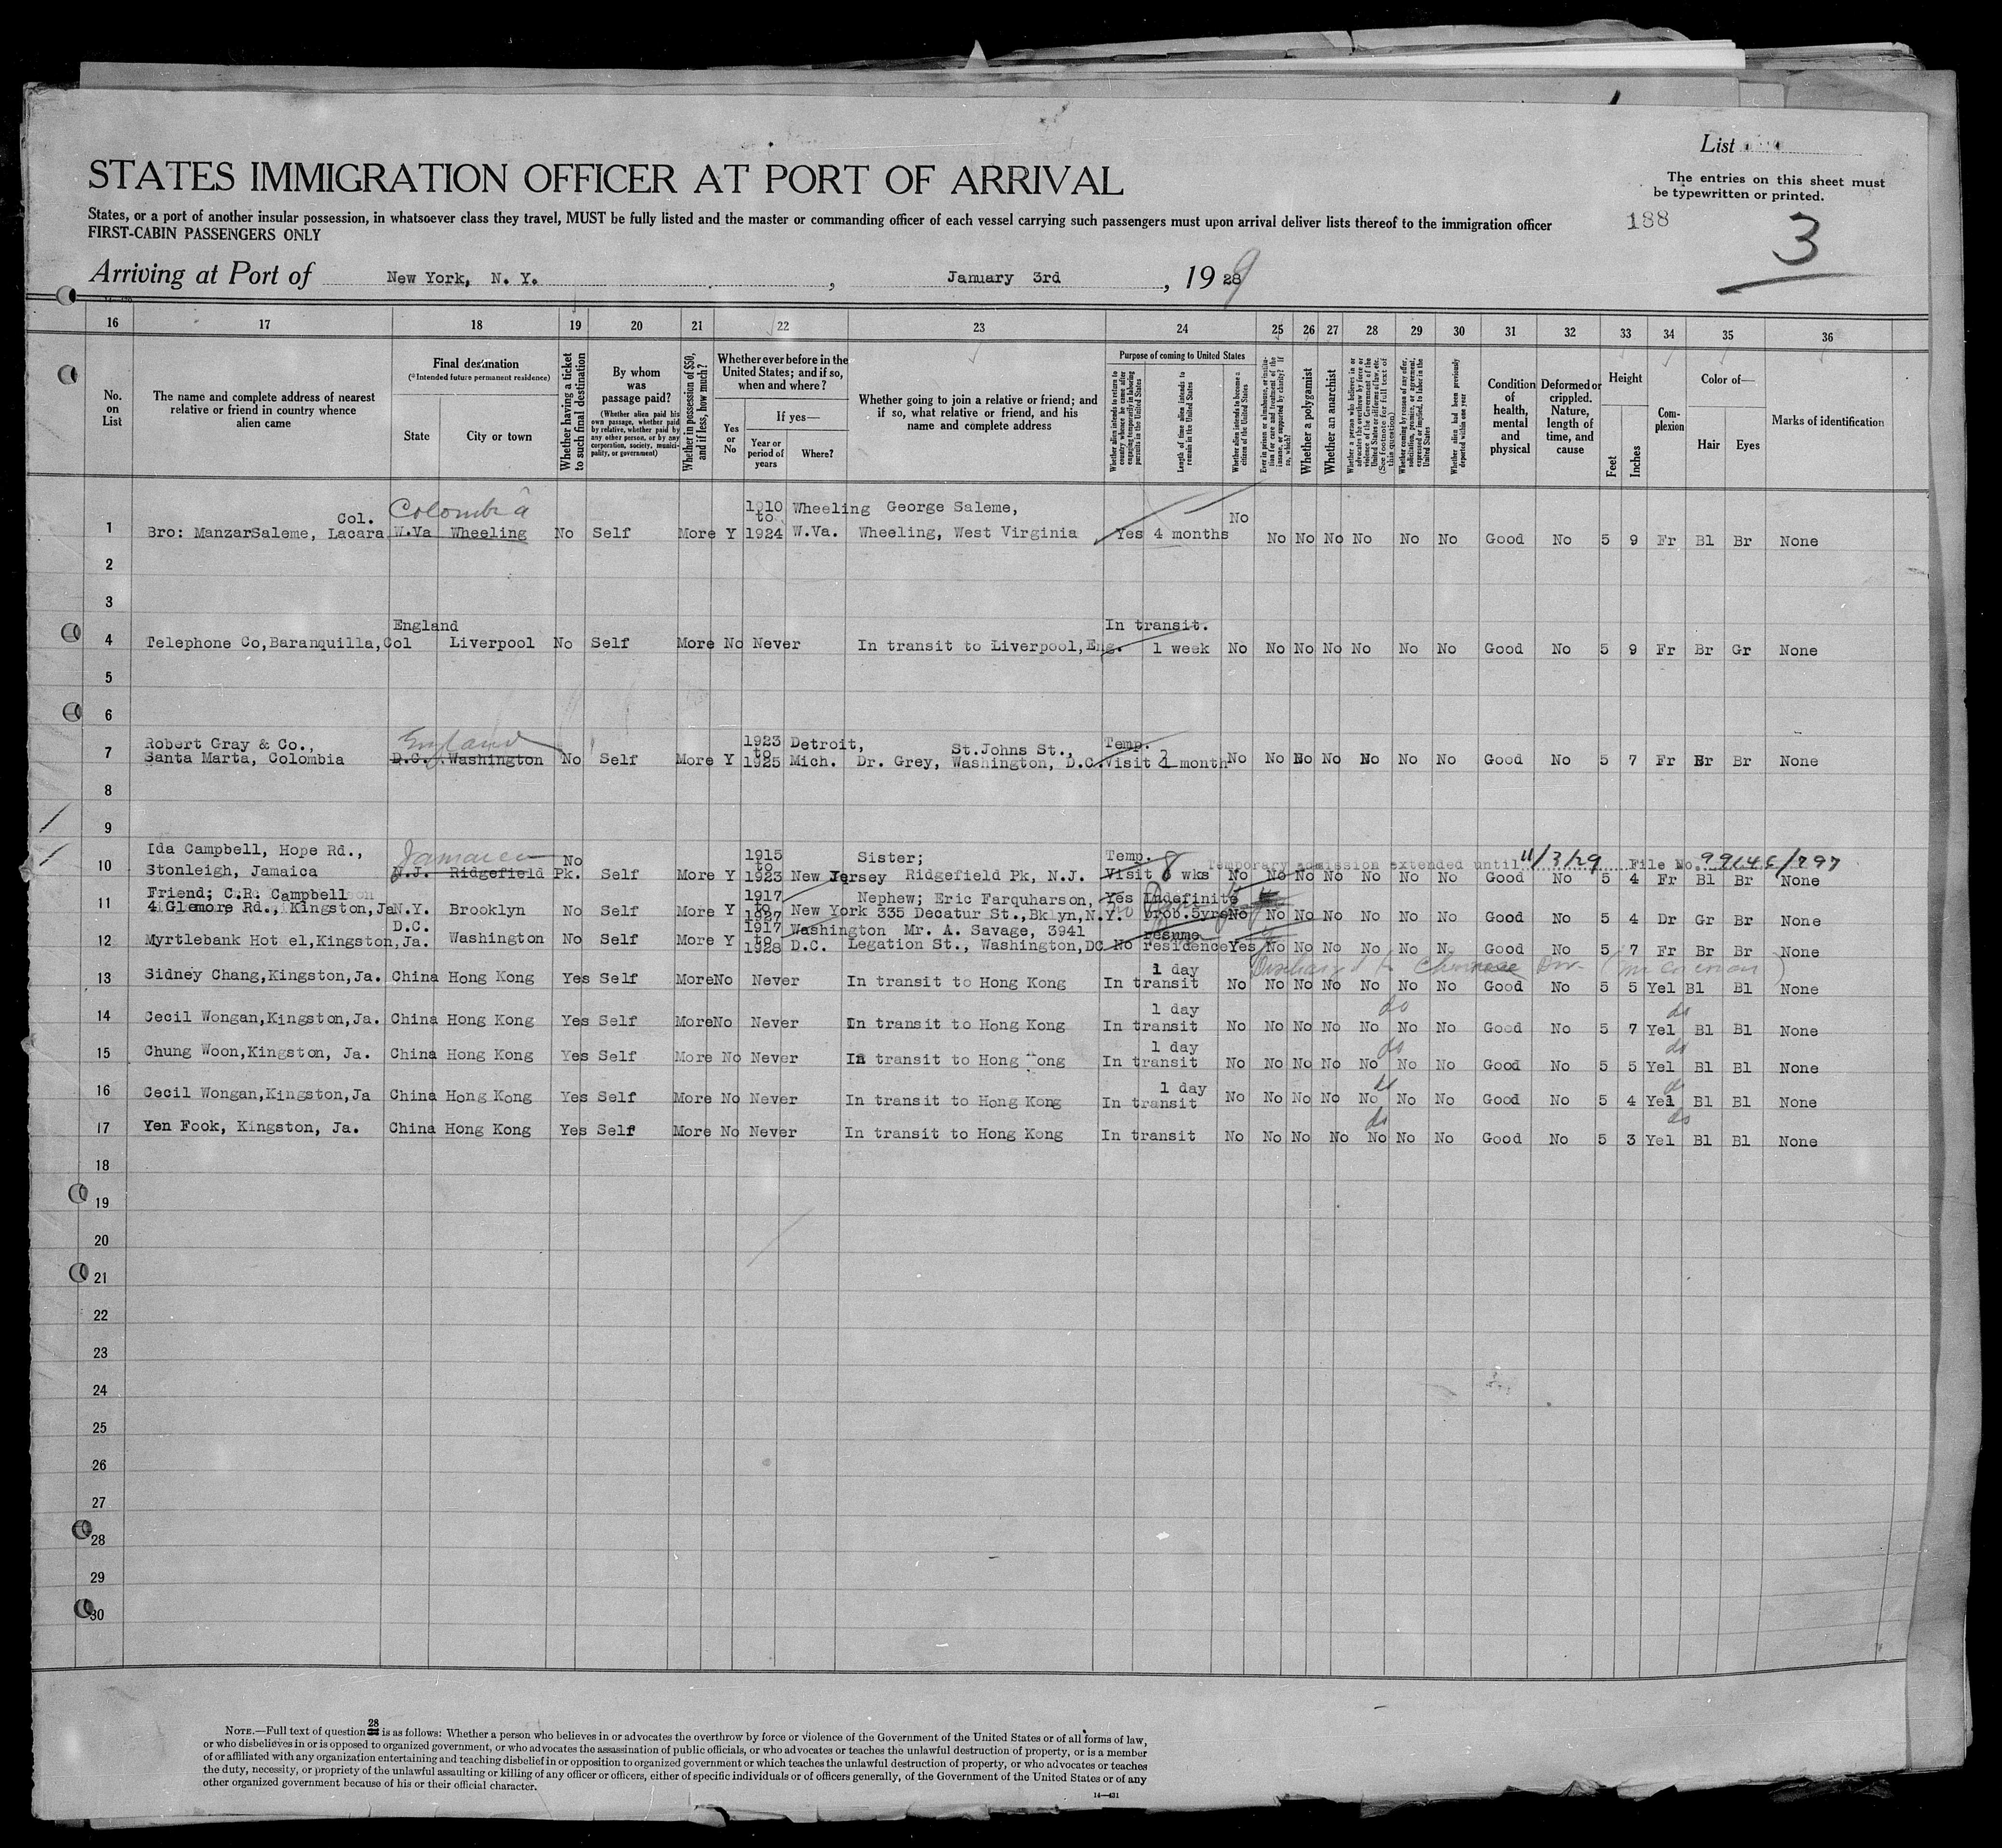 List
STATES IMMIGRATION OFFICER AT PORT OF ARRIVAL
The entries on this sheet must
be typewritten or printed.
States, or a port of another insular possession, in whatsoever class they travel, MUST be fully listed and the master or commanding officer of each vessel carrying such passengers must upon arrival deliver lists thereof to the immigration officer
FIRST-CABIN PASSENGERS ONLY
188
3
Arriving at Port of New York, N. Y., January 3rd, 19 28 9
16 17 18 19 20 21 22 23 24 25 26 27 28 29 30 31 32 33 34 35 36
No. on List
The name and complete address of nearest relative or friend in country whence alien came
Final destination
(*Intended future permanent residence)
State
City or town
Whether having a ticket to such final destination
By whom was passage paid?
(Whether alien paid his own passage, whether paid by relative, whether paid by any other person, or by any corporation, society, municipality, or government)
Whether in possession of $50, and if less, how much?
Whether ever before in the United States; and if so, when and where?
Yes or No
If yes—
Year or period of years
Where?
Whether going to join a relative or friend; and if so, what relative or friend, and his name and complete address
Purpose of coming to United States
Whether alien intends to return to country whence he came after engaging temporarily in laboring pursuits in the United States
Length of time alien intends to remain in the United States
Whether alien intends to become a citizen of the United States
Ever in prison or almshouse, or institution for care and treatment of the insane, or supported by charity? If so, which?
Whether a polygamist
Whether an anarchist
Whether a person who believes in or advocates the overthrow by force or violence of the Government of the United States or all forms of law, etc. (See footnote for full text of this question)
Whether coming by reason of any offer, solicitation, promise, or agreement, expressed or implied, to labor in the United States
Whether alien had been previously deported within one year
Condition of health, mental and physical
Deformed or crippled. Nature, length of time, and cause
Height
Feet
Inches
Complexion
Color of—
Hair
Eyes
Marks of identification
Colombia
1 Bro: Manzar Saleme, Lacara Col. W.Va Wheeling No Self More Y 1910 to 1924 Wheeling W.Va. George Saleme, Wheeling, West Virginia Yes 4 months No No No No No No No Good No 5 9 Fr Bl Br None
2
3
4 Telephone Co, Baranquilla, Col England Liverpool No Self More No Never In transit to Liverpool, Eng. In transit. 1 week No No No No No No No Good No 5 9 Fr Br Gr None
5
6
England
7 Robert Gray & Co., Santa Marta, Colombia D.C. Washington No Self More Y 1923 to 1925 Detroit, Mich. Dr. Grey, St.Johns St., Washington, D.C. Temp. Visit 1 month No No No No No No No Good No 5 7 Fr Br Br None
8
9
Jamaica
Temporary admission extended until 11/3/29 File No. 99146/797
10 Ida Campbell, Hope Rd., Stonleigh, Jamaica N.J. Ridgefield Pk. No Self More Y 1915 to 1923 New Jersey Sister; Ridgefield Pk, N.J. Temp. Visit 8 wks No No No No No No No Good No 5 4 Fr Bl Br None
11 Friend; C.R. Campbell 4 Glemore Rd., Kingston, Ja N.Y. Brooklyn No Self More Y 1917 to 1927 New York Nephew; Eric Farquharson, 335 Decatur St., Bklyn, N.Y. Yes No Indefinite prob. 5yrs No No No No No No No Good No 5 4 Dr Gr Br None
12 Myrtlebank Hotel, Kingston, Ja. D.C. Washington No Self More Y 1917 to 1928 Washington D.C. Mr. A. Savage, 3941 Legation St., Washington, DC No resume residence Yes No No No No No No Good No 5 7 Fr Br Br None
Discharged to Chinese
13 Sidney Chang, Kingston, Ja. China Hong Kong Yes Self More No Never In transit to Hong Kong 1 day In transit No No No No No No No Good No 5 5 Yel Bl Bl None
do do
14 Cecil Wongan, Kingston, Ja. China Hong Kong Yes Self More No Never In transit to Hong Kong 1 day In transit No No No No No No No Good No 5 7 Yel Bl Bl None
do do
15 Chung Woon, Kingston, Ja. China Hong Kong Yes Self More No Never In transit to Hong Kong 1 day In transit No No No No No No No Good No 5 5 Yel Bl Bl None
do do
16 Cecil Wongan, Kingston, Ja China Hong Kong Yes Self More No Never In transit to Hong Kong 1 day In transit No No No No No No No Good No 5 4 Yel Bl Bl None
do do
17 Yen Fook, Kingston, Ja. China Hong Kong Yes Self More No Never In transit to Hong Kong In transit No No No No No No No Good No 5 3 Yel Bl Bl None
18
19
20
21
22
23
24
25
26
27
28
29
30
NOTE.—Full text of question 28 is as follows: Whether a person who believes in or advocates the overthrow by force or violence of the Government of the United States or of all forms of law,
or who disbelieves in or is opposed to organized government, or who advocates the assassination of public officials, or who advocates or teaches the unlawful destruction of property, or is a member
of or affiliated with any organization entertaining and teaching disbelief in or opposition to organized government or which teaches the unlawful destruction of property, or who advocates or teaches
the duty, necessity, or propriety of the unlawful assaulting or killing of any officer or officers, either of specific individuals or of officers generally, of the Government of the United States or of any
other organized government because of his or their official character.
14—431